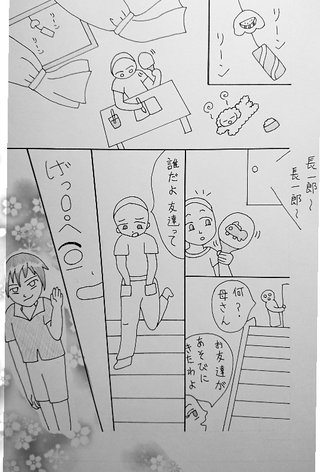 リーン
リーン
リーン
リーン
長一郎〜
長一郎〜
何？
母さん
お友達が
あそびに
きたわよ
誰だよ友達って
げっ○○ヘ○